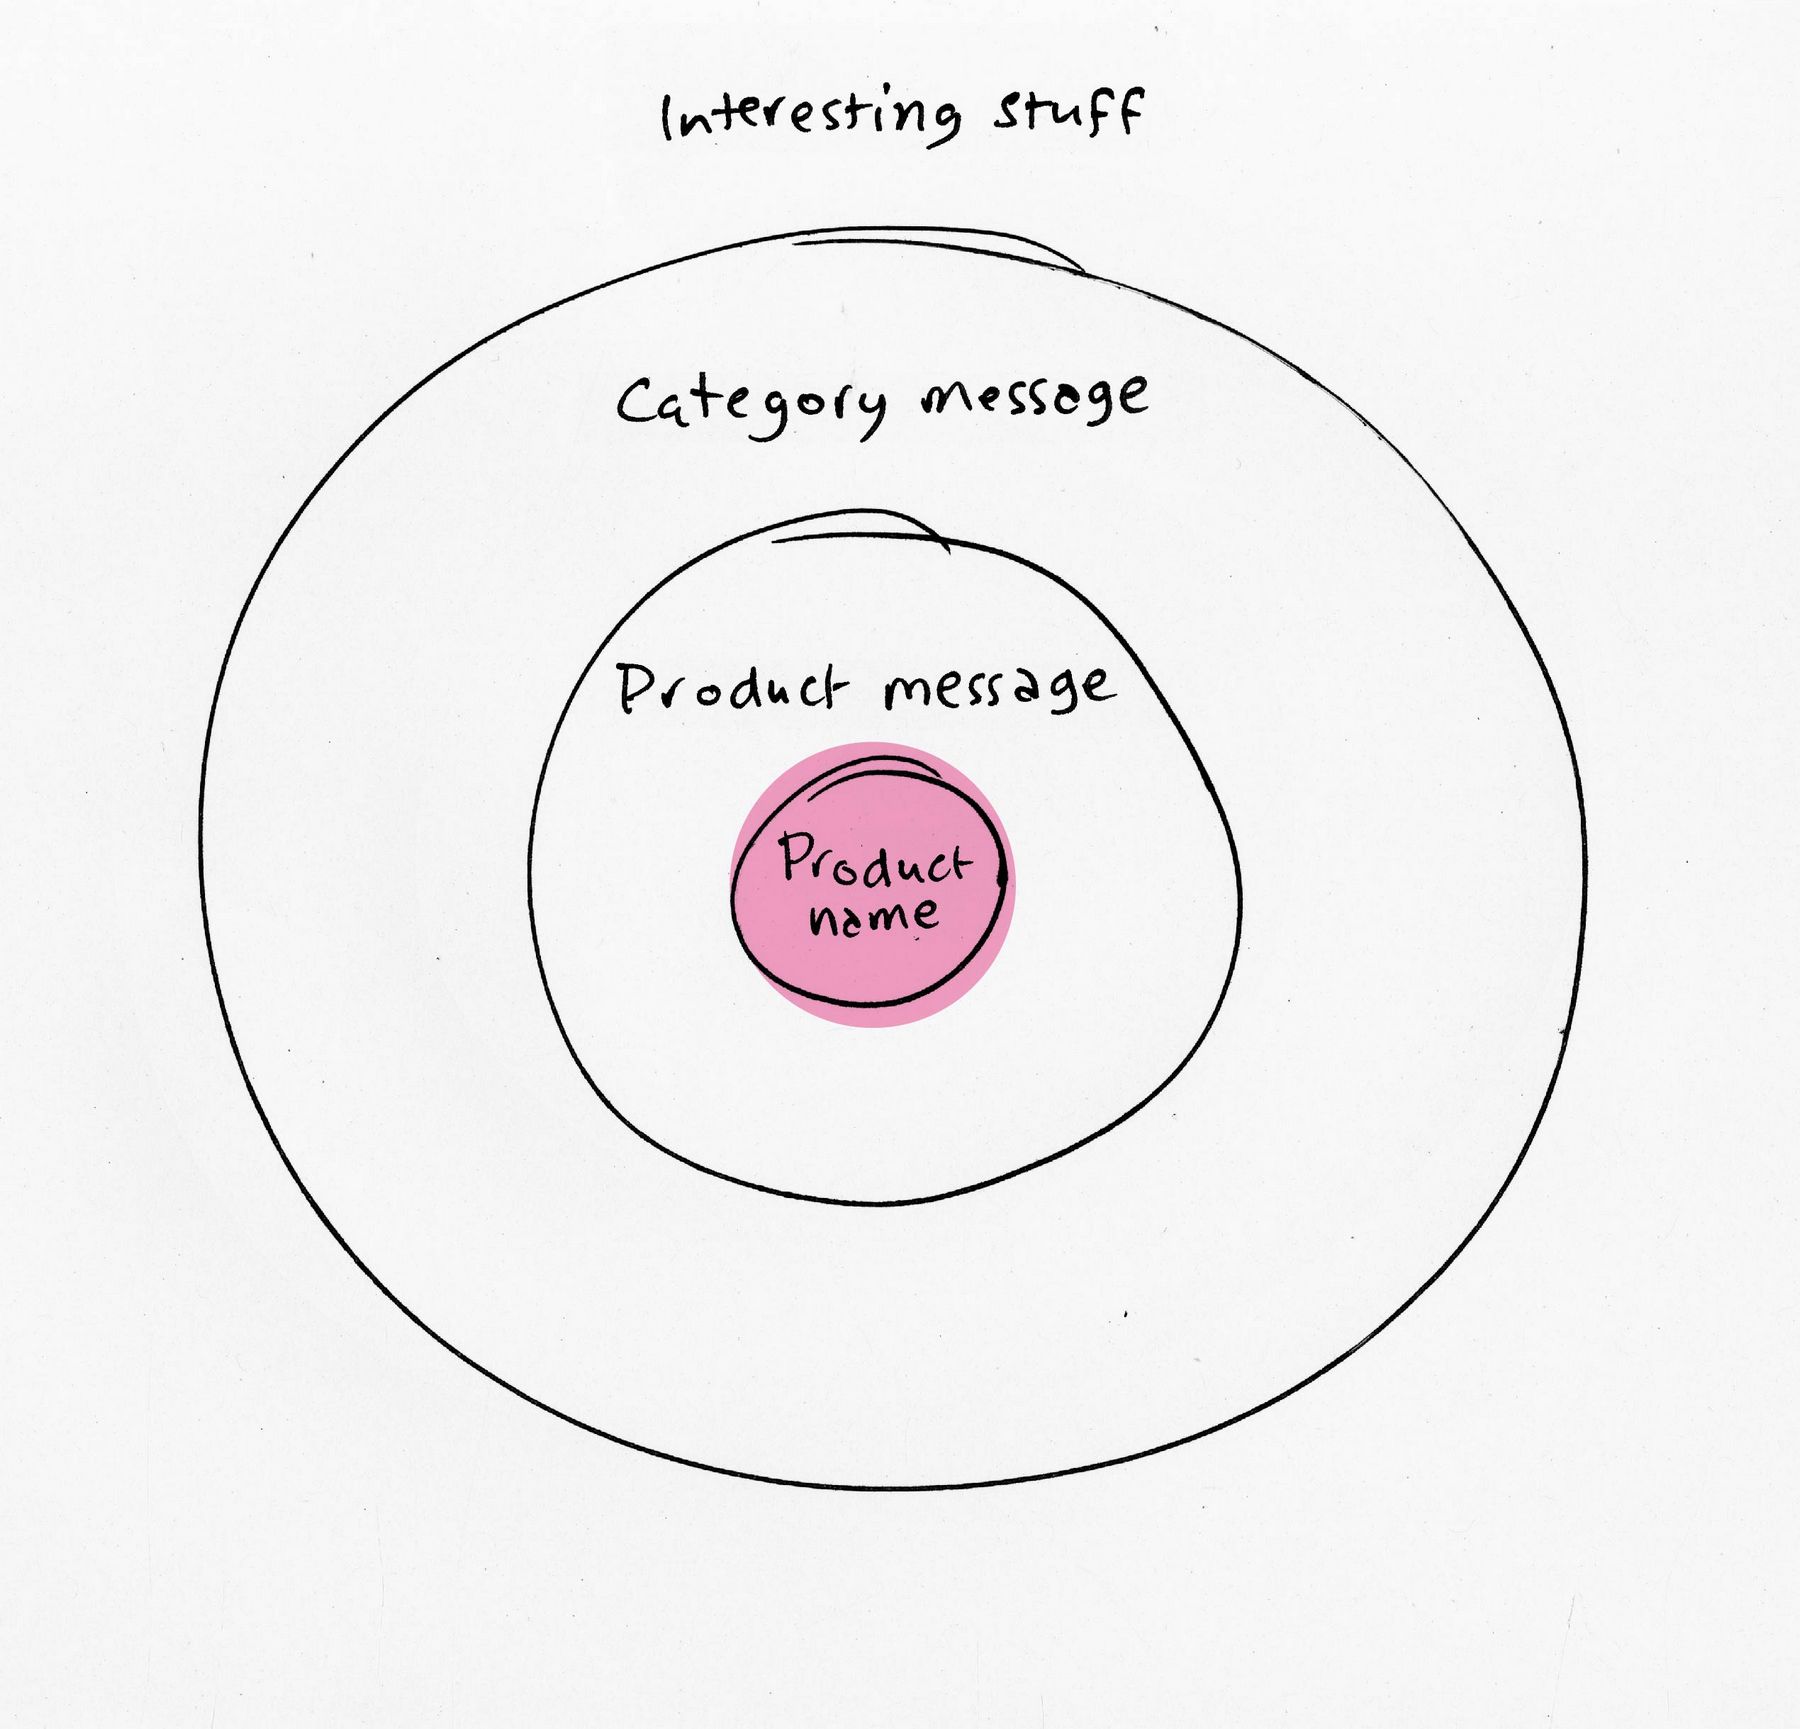 Interesting stuff
Category message
Product message
Product
name